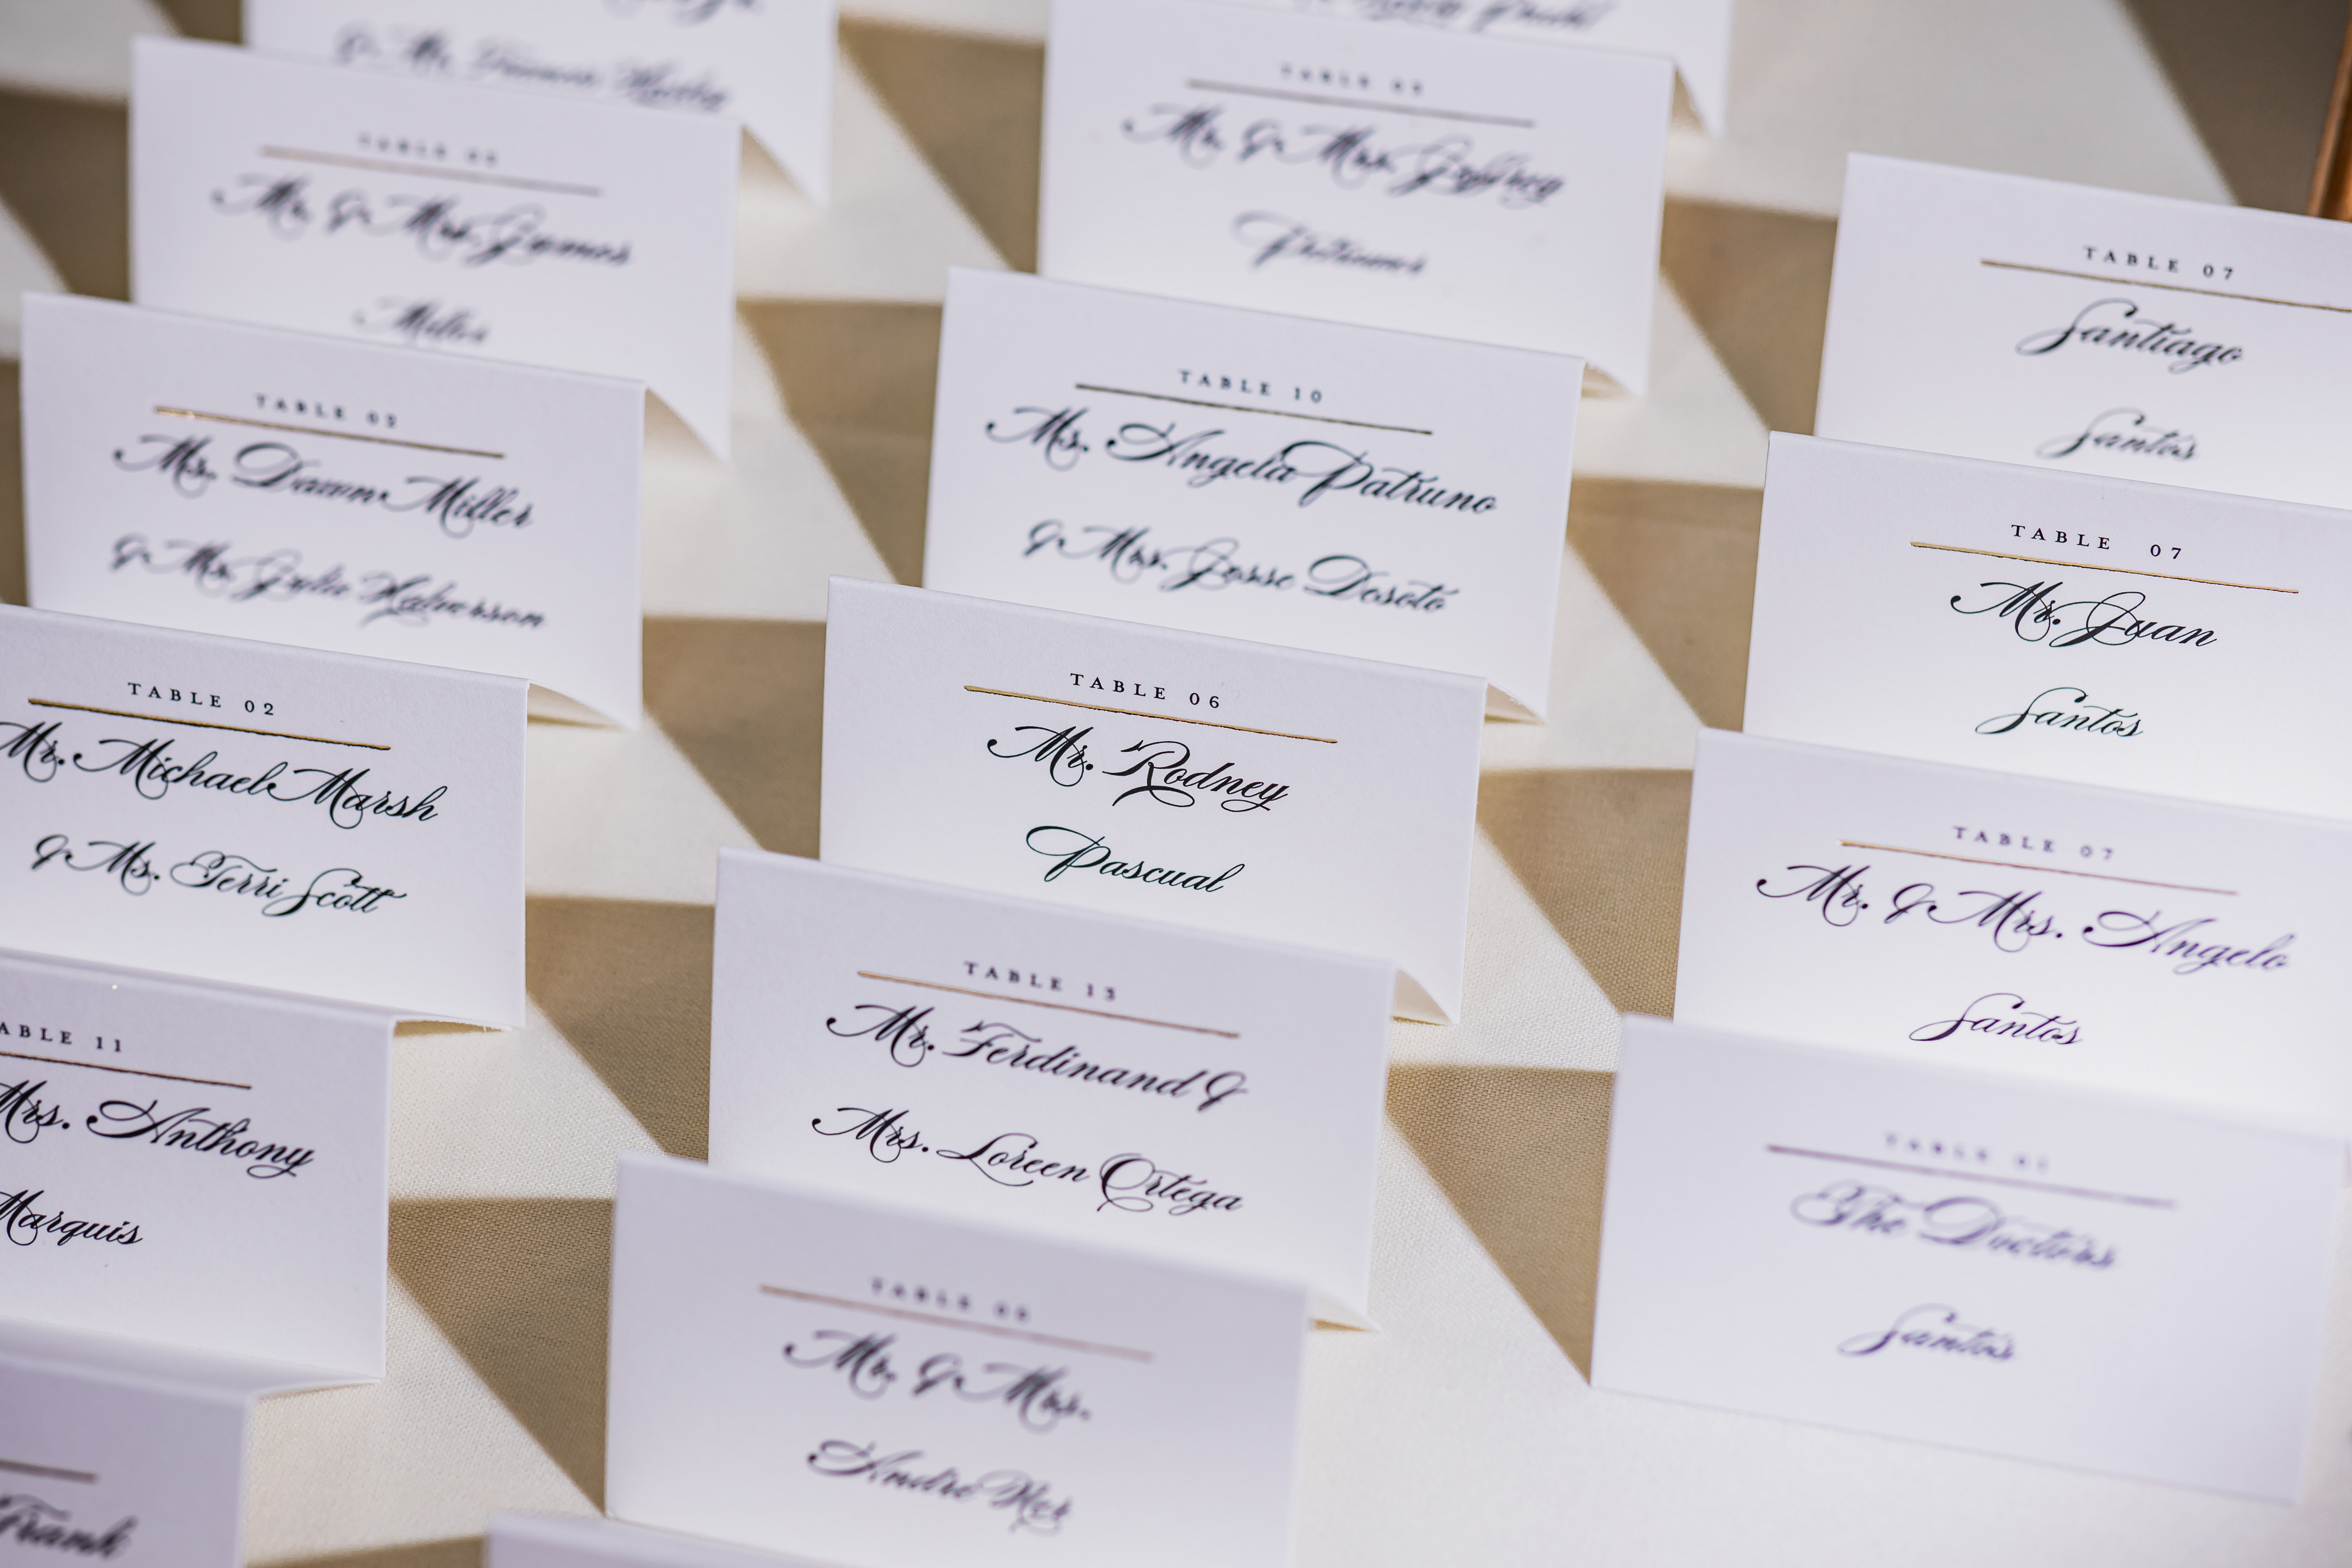 & Mr.
TABLE
Mr. & Mrs. James
Miller
TABLE
Mr. & Mrs. Geffrey
TABLE 07
Santiago
Santos
TABLE
Ms. Dawn Miller
& Ms. Julie Halverson
TABLE 10
Ms. Angela Patruno
& Mrs. Josse Dosoto
TABLE 07
Mr. Juan
Santos
TABLE 02
Mr. Michael Marsh
& Ms. Terri Scott
TABLE 06
Mr. Rodney
Pascual
TABLE 07
Mr. & Mrs. Angelo
Santos
ABLE 11
Mrs. Anthony
Marquis
TABLE 13
Mr. Ferdinand &
Mrs. Loreen Ortega
TABLE
The
Santos
TABLE
Mr. & Mrs.
Andre
Frank